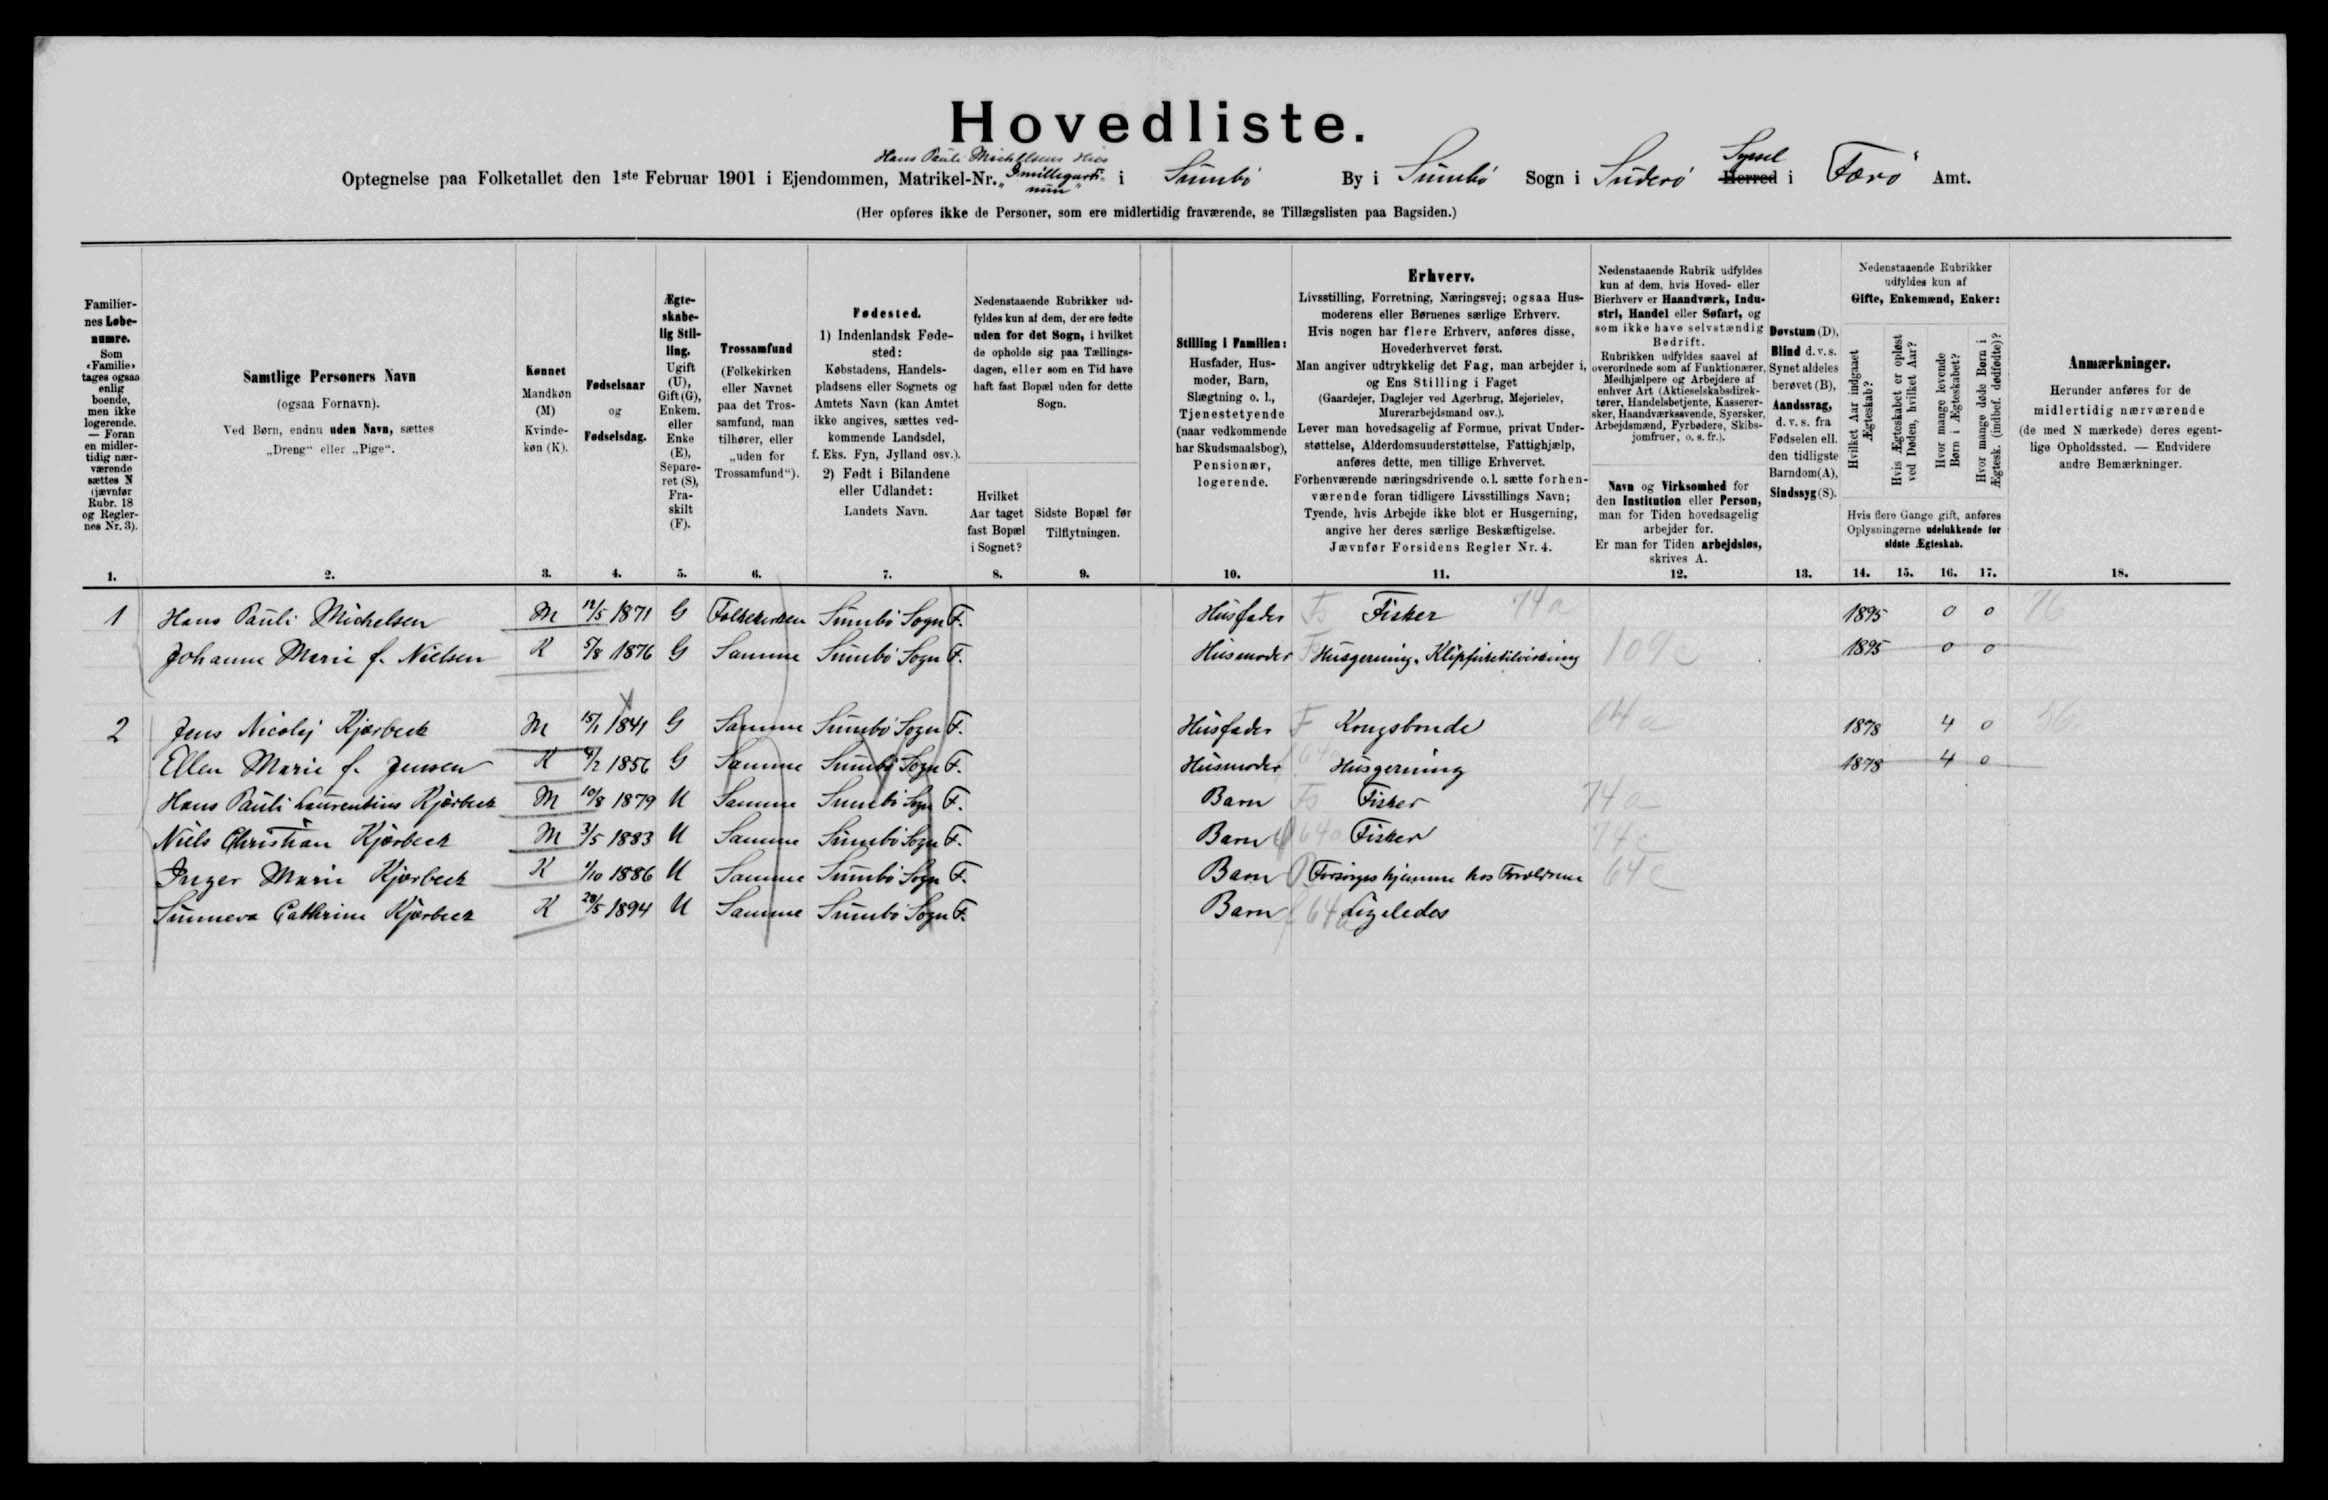 Hovedliste.
Hans Pauli Michelsens Hus
Optegnelse paa Folketallet den 1ste Februar 1901 i Ejendommen, Matrikel-Nr. i Sumbø By i Sumbø Sogn i Suderø Syssel Herred i Færø Amt.
(Her opføres ikke de Personer, som ere midlertidig fraværende, se Tillægslisten paa Bagsiden.)
Familiernes Løbenumre. Som «Familie» tages ogsaa enlig boende, men ikke logerende. — Foran en midlertidig nærværende sættes N (jævnfør Rubr. 18 og Reglernes Nr. 3).
Samtlige Personers Navn (ogsaa Fornavn). Ved Børn, endnu uden Navn, sættes „Dreng“ eller „Pige“.
Kønnet Mandkøn (M) Kvindekøn (K).
Fødselsaar og Fødselsdag.
Ægteskabelig Stilling. Ugift (U), Gift (G), Enkem. eller Enke (E), Separeret (S), Fraskilt (F).
Trossamfund (Folkekirken eller Navnet paa det Trossamfund, man tilhører, eller „uden for Trossamfund“).
Fødested. 1) Indenlandsk Fødested: Købstadens, Handelspladsens eller Sognets og Amtets Navn (kan Amtet ikke angives, sættes vedkommende Landsdel, f. Eks. Fyn, Jylland osv.). 2) Født i Bilandene eller Udlandet: Landets Navn.
Nedenstaaende Rubrikker udfyldes kun af dem, der ere fødte uden for det Sogn, i hvilket de opholde sig paa Tællingsdagen, eller som en Tid have haft fast Bopæl uden for dette Sogn.
Hvilket Aar taget fast Bopæl i Sognet?
Sidste Bopæl før Tilflytningen.
Stilling i Familien: Husfader, Husmoder, Barn, Slægtning o. l., Tjenestetyende (naar vedkommende har Skudsmaalsbog), Pensionær, logerende.
Erhverv.
Livsstilling, Forretning, Næringsvej; ogsaa Husmoderens eller Børnenes særlige Erhverv.
Hvis nogen har flere Erhverv, anføres disse, Hovederhvervet først.
Man angiver udtrykkelig det Fag, man arbejder i, og Ens Stilling i Faget (Gaardejer, Daglejer ved Agerbrug, Mejerielev, Murerarbejdsmand osv.).
Lever man hovedsagelig af Formue, privat Understøttelse, Alderdomsunderstøttelse, Fattighjælp, anføres dette, men tillige Erhvervet.
Forhenværende næringsdrivende o. l. sætte forhenværende foran tidligere Livsstillings Navn; Tyende, hvis Arbejde ikke blot er Husgerning, angive her deres særlige Beskæftigelse.
Jævnfør Forsidens Regler Nr. 4.
Nedenstaaende Rubrik udfyldes kun af dem, hvis Hoved- eller Bierhverv er Haandværk, Industri, Handel eller Søfart, og som ikke have selvstændig Bedrift.
Rubrikken udfyldes saavel af overordnede som af Funktionærer, Medhjælpere og Arbejdere af enhver Art (Aktieselskabsdirektører, Handelsbetjente, Kasserersker, Haandværkssvende, Syersker, Arbejdsmænd, Fyrbødere, Skibsjomfruer, o. s. fr.).
Navn og Virksomhed for den Institution eller Person, man for Tiden hovedsagelig arbejder for.
Er man for Tiden arbejdsløs, skrives A.
Døvstum (D), Blind d. v. s. Synet aldeles berøvet (B), Aandssvag, d. v. s. fra Fødselen ell. den tidligste Barndom (A), Sindssyg (S).
Nedenstaaende Rubrikker udfyldes kun af Gifte, Enkemænd, Enker:
Hvilket Aar indgaaet Ægteskab?
Hvis Ægteskabet er opløst ved Døden, hvilket Aar?
Hvor mange levende Børn i Ægteskabet?
Hvor mange døde Børn i Ægtesk. (indbef. dødfødte)?
Hvis flere Gange gift, anføres Oplysningerne udelukkende for sidste Ægteskab.
Anmærkninger. Herunder anføres for de midlertidig nærværende (de med N mærkede) deres egentlige Opholdssted. — Endvidere andre Bemærkninger.
1. 2. 3. 4. 5. 6. 7. 8. 9. 10. 11. 12. 13. 14. 15. 16. 17. 18.
1 Hans Pauli Michelsen M 12/5 1871 G Folkekirken Sumbø Sogn F. Husfader Fs Fisker 74a 1895 0 0 76
Johanne Marie f. Nielsen K 5/8 1876 G Samme Sumbø Sogn F. Husmoder Husgerning. Klipfisketilvirkning 109c 1895 0 0
2 Jens Nicolaj Kjørbeck M 15/1 1841 G Samme Sumbø Sogn F. Husfader F Kongsbonde 64a 1878 4 0
Ellen Marie f. Jensen K 1856 G Samme Sumbø Sogn F. Husmoder Husgerning 1878 4 0
Hans Pauli Laurentius Kjørbeck M 10/8 1879 U Samme Sumbø Sogn F. Barn Fs Fisker 74a
Niels Christian Kjørbeck M 3/5 1883 U Samme Sumbø Sogn F. Barn 64a Fisker 74c
Inger Marie Kjørbeck K 1/10 1886 U Samme Sumbø Sogn F. Barn Forsørges hjemme hos Forældrene 64c
Sunneva Cathrine Kjørbeck K 28/5 1894 U Samme Sumbø Sogn F. Barn 64a Ligeledes